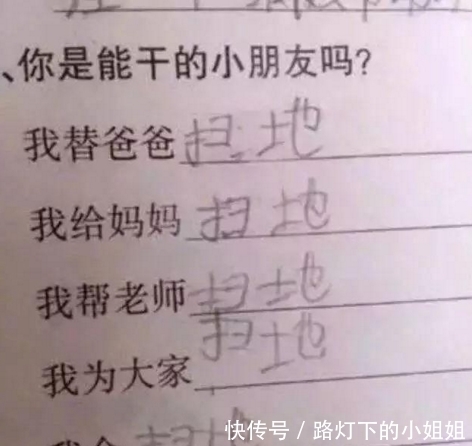 、你是能干的小朋友吗?
我替爸爸扫地
我给妈妈扫地
我帮老师扫地
我为大家扫地
扫地
快传号 / 路灯下的小姐姐